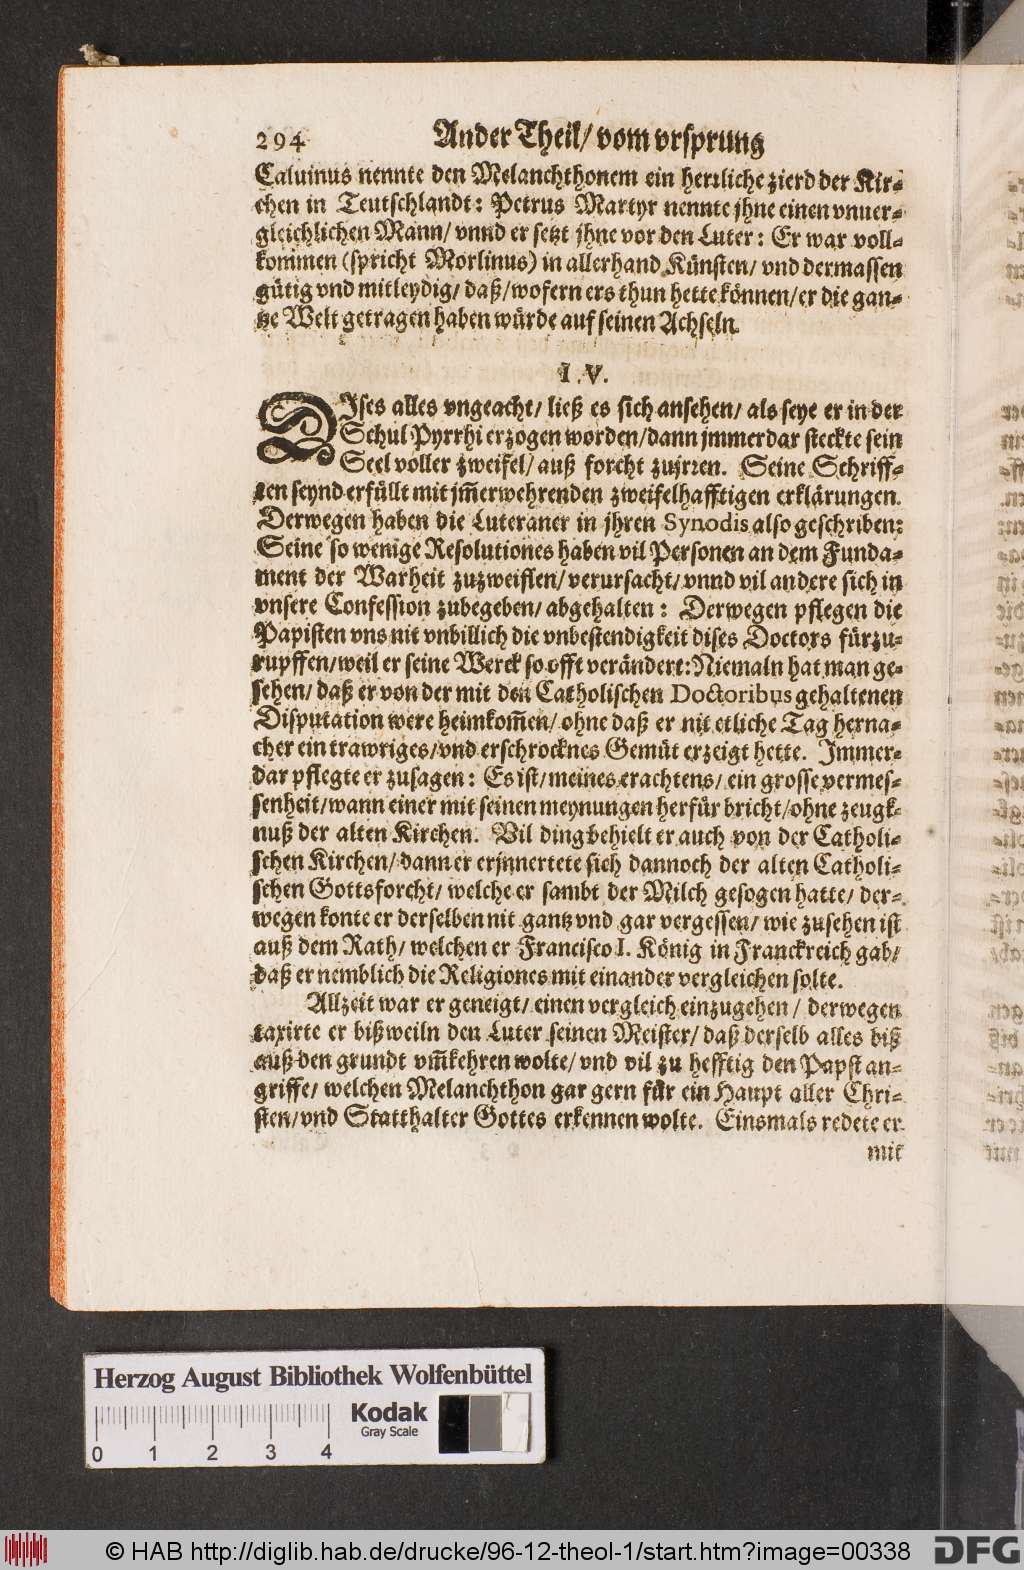 294 Ander Theil/ vom vrsprung
Caluinus nennte den Melanchthonem ein herꝛliche zierd der Kir-
chen in Teutschlandt: Petrus Martyr nennte jhne einen vnuer-
gleichlichen Mann/ vnnd er setzt jhne vor den Luter: Er war voll-
kommen (spricht Morlinus) in allerhand Künsten/ vnd dermassen
gütig vnd mitleydig/ daß/ wofern ers thun hette können/ er die gan-
tze Welt getragen haben würde auf seinen Achseln.
I.V.
DIses alles vngeacht/ ließ es sich ansehen/ als seye er in der
Schul Pyrrhi erzogen worden/ dann jmmerdar steckte sein
Seel voller zweifel/ auß forcht zujrꝛen. Seine Schriff-
ten seynd erfüllt mit jm̃erwehrenden zweifelhafftigen erklärungen.
Derwegen haben die Luteraner in jhren Synodis also geschriben:
Seine so wenige Resolutiones haben vil Personen an dem Funda-
ment der Warheit zuzweiflen/ verursacht/ vnnd vil andere sich in
vnsere Confession zubegeben/ abgehalten: Derwegen pflegen die
Papisten vns nit vnbillich die vnbestendigkeit dises Doctors fürzu-
rupffen/ weil er seine Werck so offt verändert: Niemaln hat man ge-
sehen/ daß er von der mit den Catholischen Doctoribus gehaltenen
Disputation were heimkom̃en/ ohne daß er nit etliche Tag herna-
cher ein trawriges/ vnd erschrocknes Gemüt erzeigt hette. Immer-
dar pflegte er zusagen: Es ist/ meines erachtens/ ein grosse vermes-
senheit/ wann einer mit seinen meynungen herfür bricht/ ohne zeugk-
nuß der alten Kirchen. Vil ding behielt er auch von der Catholi-
schen Kirchen/ dann er erjnnertete sich dannoch der alten Catholi-
schen Gottsforcht/ welche er sambt der Milch gesogen hatte/ der-
wegen konte er derselben nit gantz vnd gar vergessen/ wie zusehen ist
auß dem Rath/ welchen er Francisco I. König in Franckreich gab/
daß er nemblich die Religiones mit einander vergleichen solte.
Allzeit war er geneigt/ einen vergleich einzugehen/ derwegen
taxirte er bißweiln den Luter seinen Meister/ daß derselb alles biß
auß den grundt vm̃kehren wolte/ vnd vil zu hefftig den Papst an-
griffe/ welchen Melanchthon gar gern für ein Haupt aller Chri-
sten/ vnd Statthalter Gottes erkennen wolte. Einsmals redete er
mit
Herzog August Bibliothek Wolfenbüttel
Kodak
Gray Scale
0 1 2 3 4
© HAB http://diglib.hab.de/drucke/96-12-theol-1/start.htm?image=00338
DFG